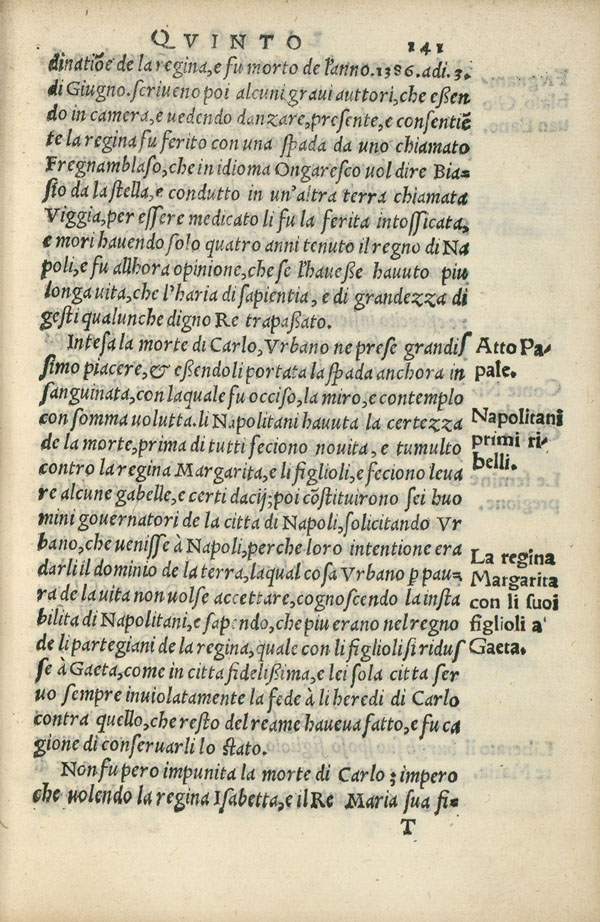 QVINTO 141
dinatiõe de la regina, e fu morto de l'anno. 1386. adi. 3.
di Giugno. scriueno poi alcuni graui auttori, che eßen
do in camera, e uedendo danzare, presente, e consentiẽ
te la regina fu ferito con una spada da uno chiamato
Fregnamblaso, che in idioma Ongaresco uol dire Bia=
sio da la stella, e condutto in un'altra terra chiamata
Viggia, per essere medicato li fu la ferita intossicata,
e mori hauendo solo quatro anni tenuto il regno di Na
poli, e fu allhora opinione, che se l'haueße hauuto piu
longa uita, che l'haria di sapientia, e di grandezza di
gesti qualunche digno Re trapaßato.
Intesa la morte di Carlo, Vrbano ne prese grandis
simo piacere, & eßendoli portata la spada anchora in
sanguinata, con laquale fu occiso, la miro, e contemplo
con somma uolutta. li Napolitani hauuta la certezza
de la morte, prima di tutti feciono nouita, e tumulto
contro la regina Margarita, e li figlioli, e feciono leua
re alcune gabelle, e certi dacij; poi cõstituirono sei huo
mini gouernatori de la citta di Napoli, solicitando Vr
bano, che uenisse à Napoli, perche loro intentione era
darli il dominio de la terra, laqual cosa Vrbano ꝑ pau=
ra de la uita non uolse accettare, cognoscendo la insta
bilita di Napolitani, e sapendo, che piu erano nel regno
de li partegiani de la regina, quale con li figlioli si ridus
se à Gaeta, come in citta fidelißima, e lei sola citta ser
uo sempre inuiolatamente la fede à li heredi di Carlo
contra quello, che resto del reame haueua fatto, e fu ca
gione di conseruarli lo stato.
Non fu pero impunita la morte di Carlo; impero
che uolendo la regina Isabetta, e il Re Maria sua fi=
T
Atto Pa-
pale.
Napolitani
primi ri-
belli.
La regina
Margarita
con li suoi
figlioli a'
Gaeta.